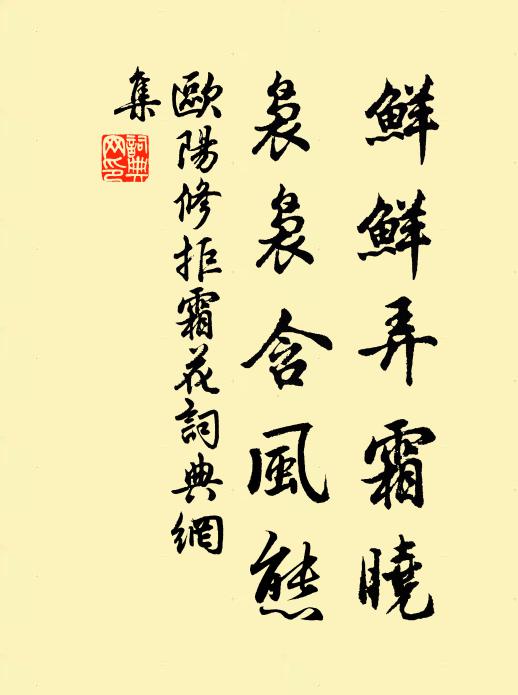 鮮鮮弄霜曉
裊裊含風態
歐陽修拒霜花詞典網
集
詞典
网印